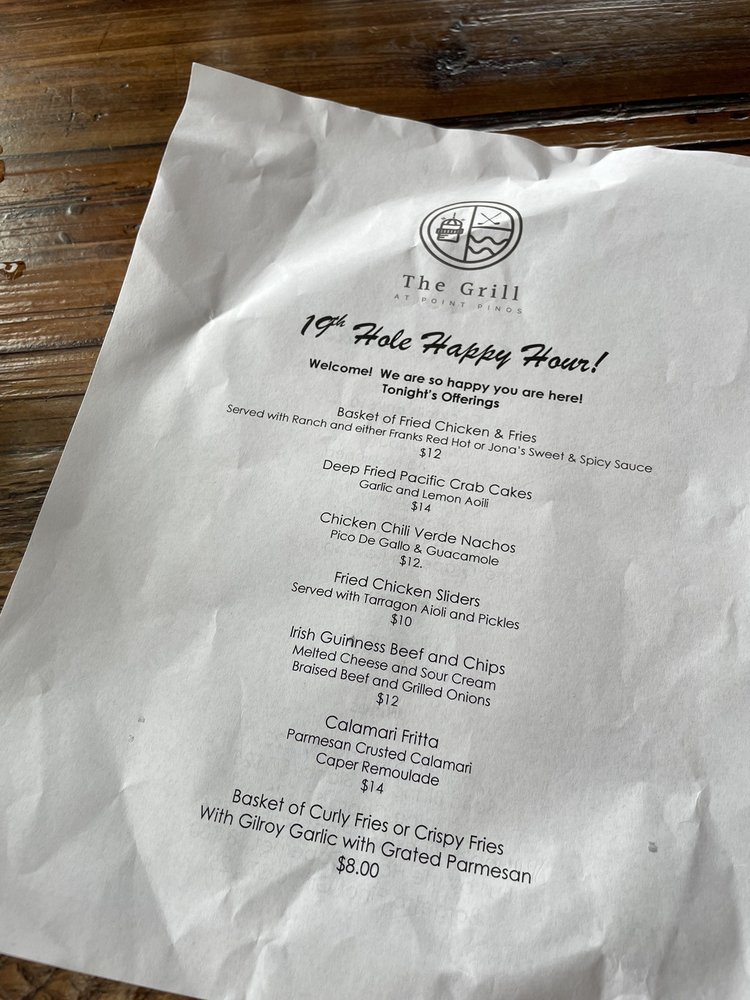 The Grill
AT POINT PINOS
19th Hole Happy Hour!
Welcome! We are so happy you are here!
Tonight's Offerings
Basket of Fried Chicken & Fries
Served with Ranch and either Franks Red Hot or Jona's Sweet & Spicy Sauce
$12
Deep Fried Pacific Crab Cakes
Garlic and Lemon Aoili
$14
Chicken Chili Verde Nachos
Pico De Gallo & Guacamole
$12.
Fried Chicken Sliders
Served with Tarragon Aioli and Pickles
$10
Irish Guinness Beef and Chips
Melted Cheese and Sour Cream
Braised Beef and Grilled Onions
$12
Calamari Fritta
Parmesan Crusted Calamari
Caper Remoulade
$14
Basket of Curly Fries or Crispy Fries
With Gilroy Garlic with Grated Parmesan
$8.00